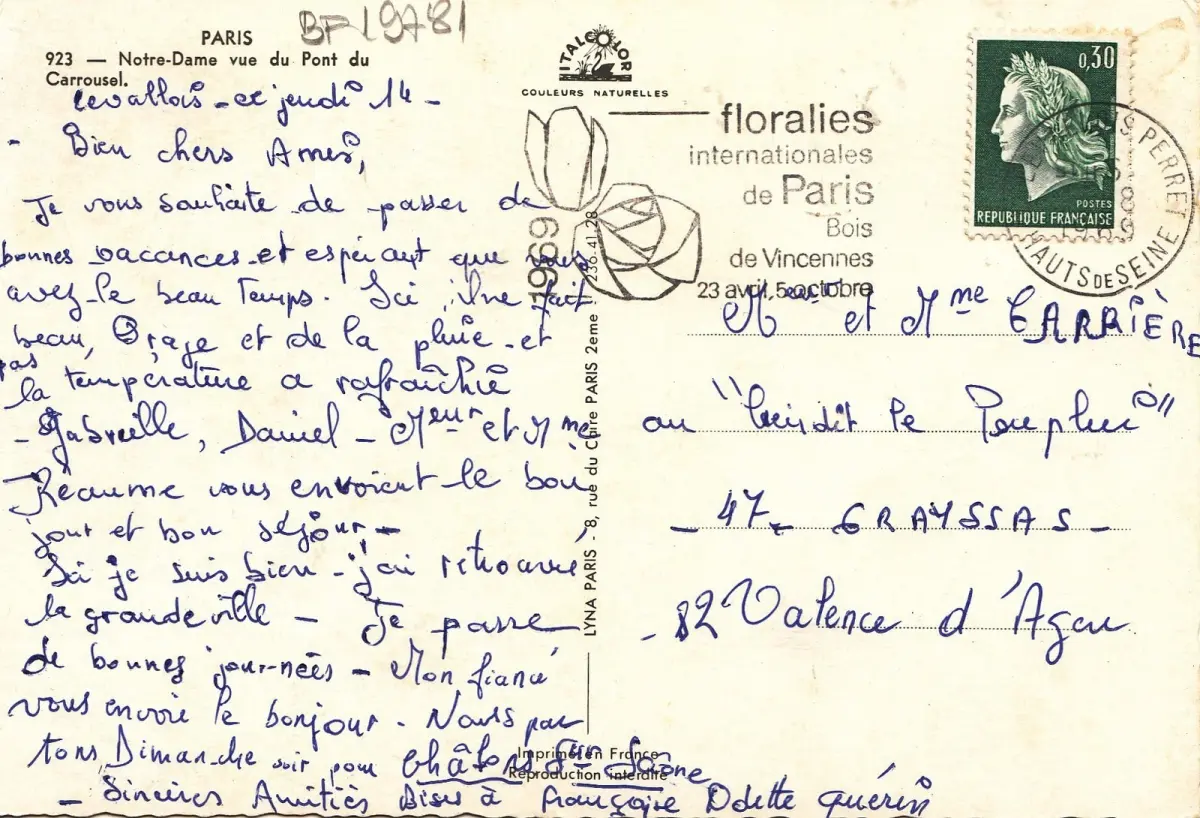 BF 19781
PARIS
923 — Notre-Dame vue du Pont du
Carrousel.
Levallois - ce jeudi 14 -
- Bien chers Amis,
Je vous souhaite de passer de
bonnes vacances et espérant que vous
avez le beau temps. Ici il ne fait
pas beau, Orage et de la pluie et
la température a rafraîchie
- Gabrielle, Daniel - Meur et Mme
Réaume vous envoient le bon
jour et bon séjour -
Ici je suis bien - j'ai retrouvé
la grande ville - Je passe
de bonnes journées - Mon fiancé
vous envoie le bonjour. Nous par
tons Dimanche soir pour Châlon s/ Saône
- Sincères Amitiés Bises à Françoise Odette Guérin
ITALCOLOR
COULEURS NATURELLES
LYNA PARIS - 8, rue du Caire PARIS 2eme 236-41.28
Imprimé en France
Reproduction interdite
1969
floralies
internationales
de Paris
Bois
de Vincennes
23 avril, 5 octobre
0,30
POSTES
REPUBLIQUE FRANÇAISE
PERRET
HAUTS DE SEINE
1969
Meur et Mme CARRIÈRE
au "lieu dit le Peuplier"
- 47 - GRAYSSAS -
- 82 Valence d'Agen